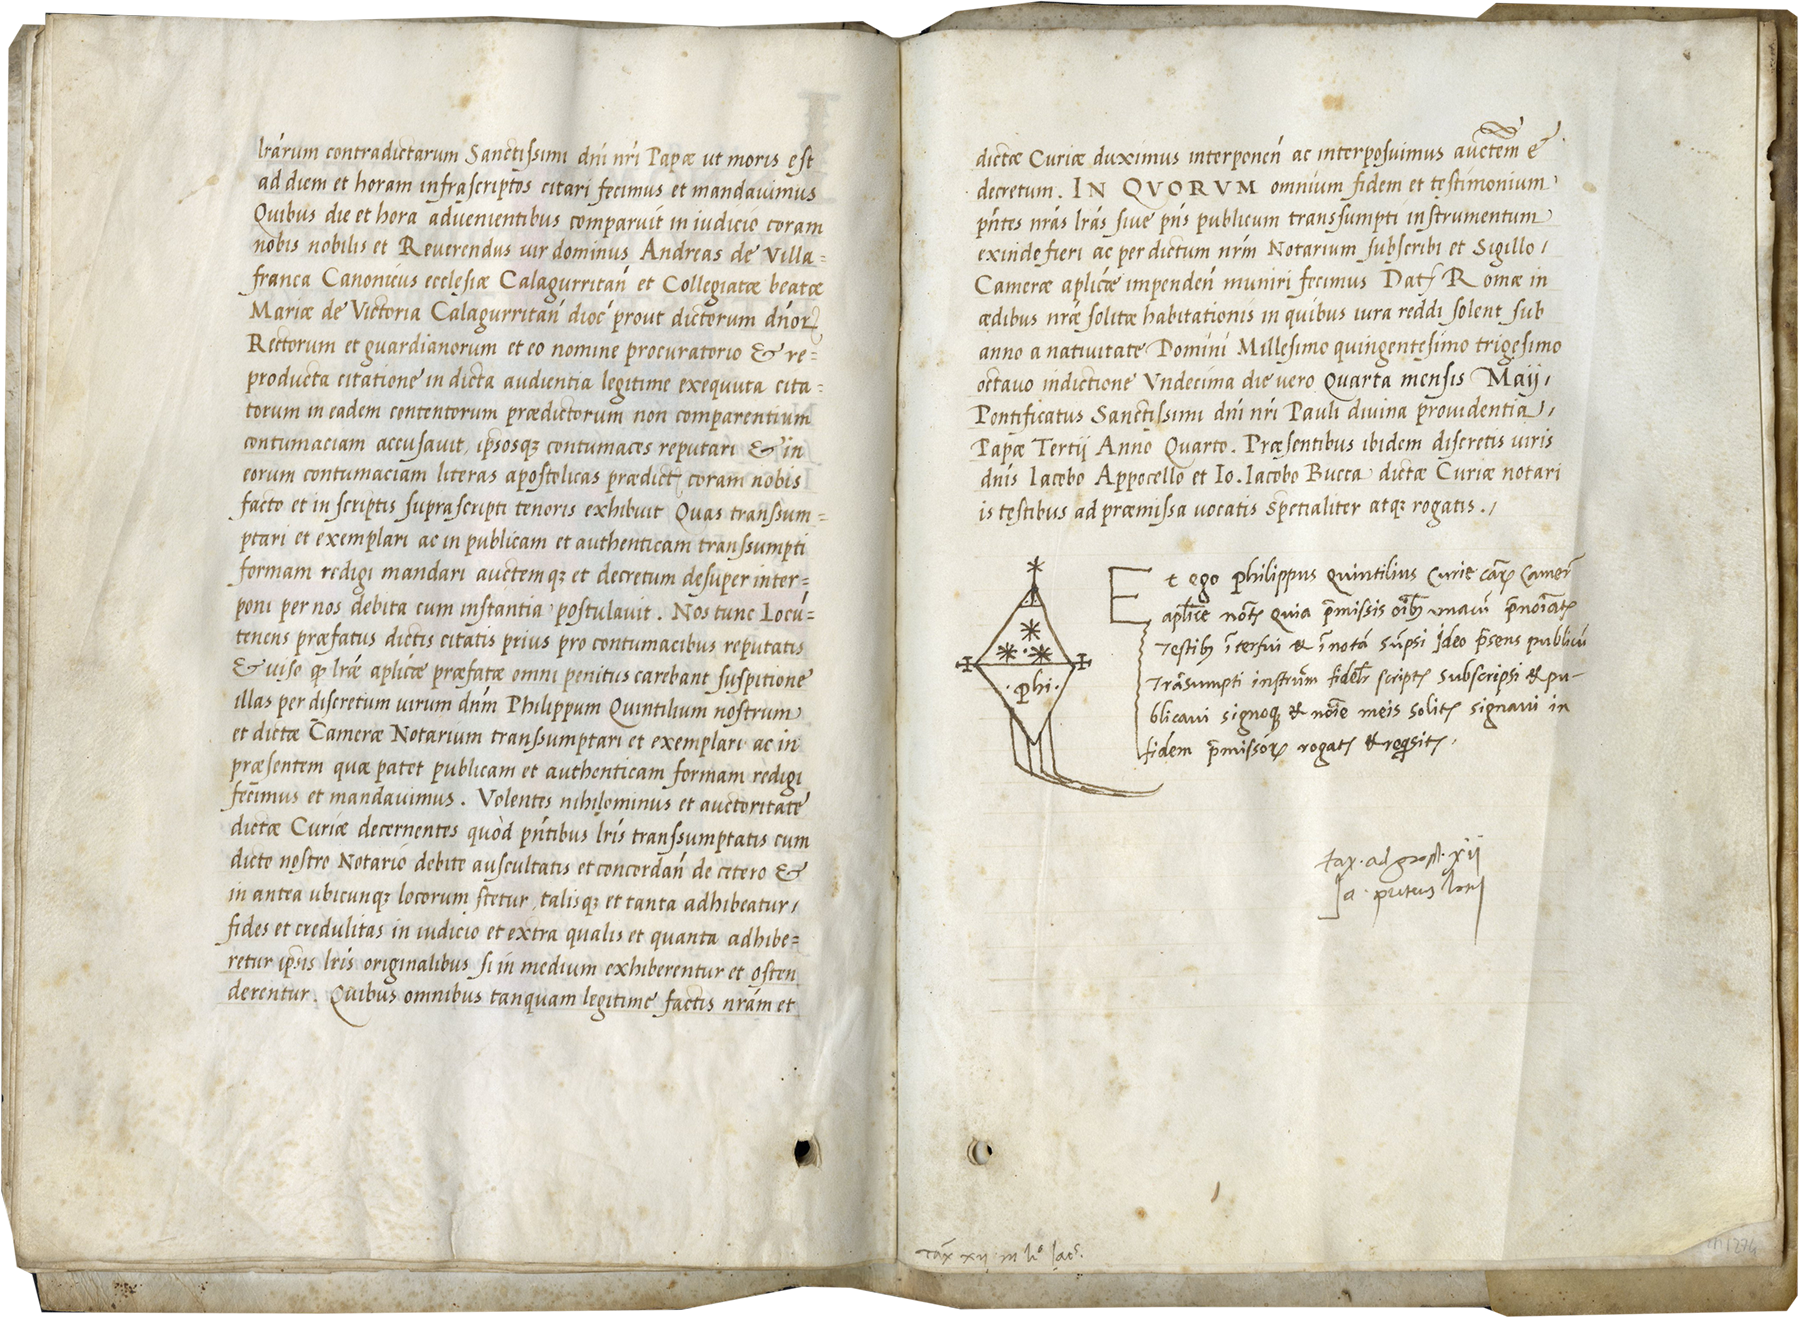 lrárum contradictarum Sanctissimi dńi nŕi Papæ ut moris est
ad diem et horam infrascriptos citari fecimus et mandauimus
Quibus die et hora aduenientibus comparuit in iudicio coram
nobis nobilis et Reuerendus uir dominus Andreas de Villa=
franca Canonicus ecclesiæ Calagurritań et Collegiatæ beatæ
Mariæ de Victoria Calagurritań dioć prout dictorum dńorꝝ
Rectorum et guardianorum et eo nomine procuratorio & re=
producta citatione in dicta audientia legitime exequuta cita=
torum in eadem contentorum prædictorum non comparentium
contumaciam accusauit, ipsosqꝫ contumaces reputari & in
eorum contumaciam literas apostolicas prædict. coram nobis
facto et in scriptis suprascripti tenoris exhibuit Quas transsum=
ptari et exemplari ac in publicam et authenticam transsumpti
formam redigi mandari auctemqꝫ et decretum desuper inter=
poni per nos debita cum instantia postulauit. Nos tunc Locú=
tenens præfatus dictis citatis prius pro contumacibus reputatis
& uiso ꝙ lráé aplicæ præfatæ omni penitus carebant suspitione
illas per discretum uirum dńm Philippum Quintilium nostrum
et dictæ Cameræ Notarium transsumptari et exemplari ac in
præsentem quæ patet publicam et authenticam formam redigi
fecimus et mandauimus. Volentes nihilominus et auctoritate
dictæ Curiæ decernentes quòd pńtibus lrís transsumptatis cum
dicto nostro Notario debite auscultatis et concordań de cetero &
in antea ubicunqꝫ locorum stetur, talisqꝫ et tanta adhibeatur,
fides et credulitas in iudicio et extra qualis et quanta adhibe=
retur ipsis lrís originalibus si in medium exhiberentur et osten
derentur. Quibus omnibus tanquam legitime factis nrám et
dictæ Curiæ duximus interponeń ac interposuimus auctem &
decretum. IN QVORVM omnium fidem et testimonium
pńtes nrás lrás siue pńs publicum transsumpti instrumentum
exinde fieri ac per dictum nrḿ Notarium subscribi et Sigillo,
Cameræ aplicæ impendeń muniri fecimus Dat. Romæ in
ædibus nrǽ solitæ habitationis in quibus iura reddi solent sub
anno a natiuitate Domini Millesimo quingentesimo trigesimo
octauo indictione Vndecima die uero Quarta mensis Maij,
Pontificatus Sanctissimi dńi nŕi Pauli diuina prouidentia,
Papæ Tertij Anno Quarto. Præsentibus ibidem discretis uiris
dńis Iacobo Appocello et Io. Iacobo Bucca dictæ Curiæ notari
is testibus ad præmissa uocatis spetialiter atqꝫ rogatis.,
Et ego Philippus Quintilius Curie caꝝ Camer̄
aplice not. quia p̄missis oībꝫ unacū p̄noīat.
testibꝫ īterfui et ī notā sūpsi Ideo p̄sens publicū
trāsumpti instrūm fidelr̄ script. subscripsi et pu-
blicaui signoqꝫ et noīe meis solit. signaui in
fidem p̄missoꝝ rogat. et reqsit.
.phi.
tax. ad gross. xij
Ja. puteus
Tax xij